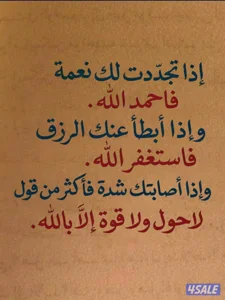 إذا تجدّدت لك نعمة
فاحمد الله.
وإذا أبطأ عنك الرزق
فاستغفر الله.
وإذا أصابتك شدة فأكثر من قول
لاحول ولا قوة إلاَّ بالله.
4SALE